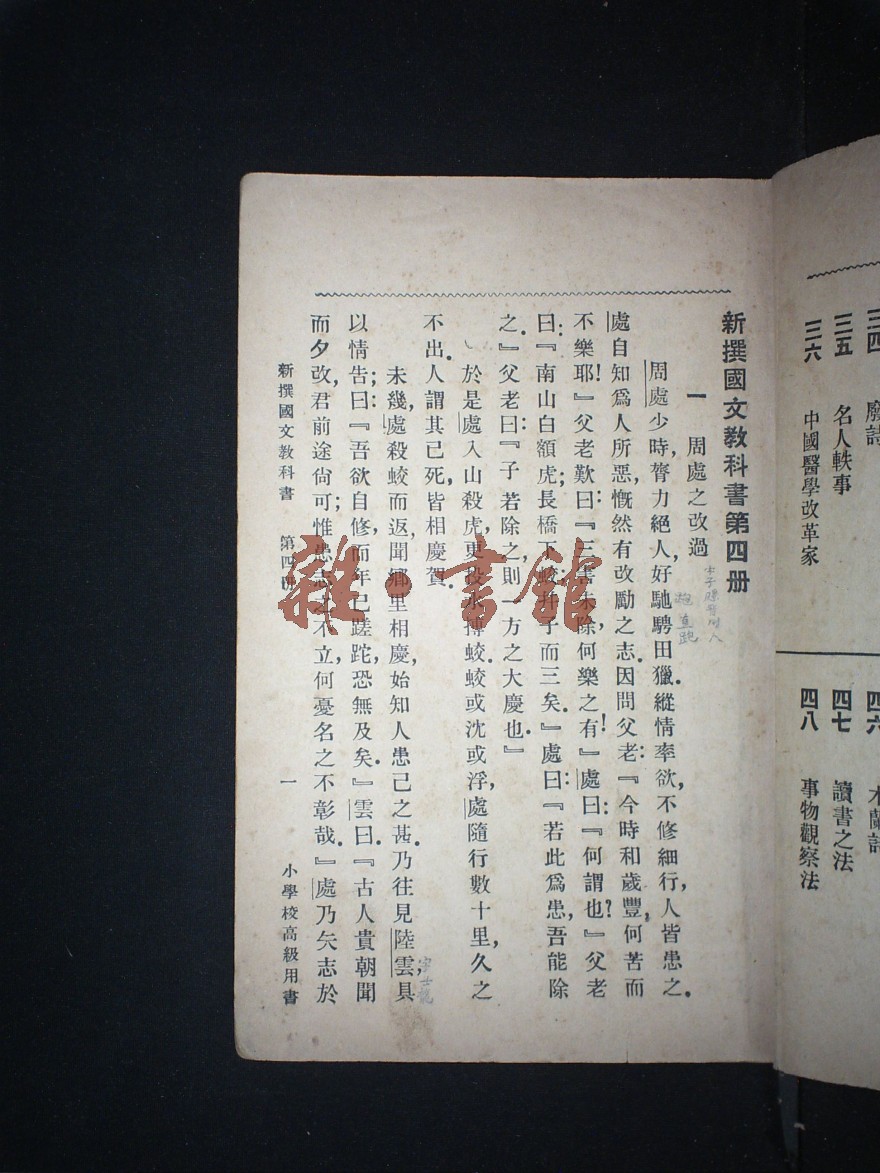 三四 廢詩
三五 名人軼事
三六 中國醫學改革家
四六 木蘭詩
四七 讀書之法
四八 事物觀察法
新撰國文教科書第四册
一 周處之改過
周處少時，膂力絕人，好馳騁田獵，縱情率欲，不修細行，人皆患之。
處自知爲人所惡，慨然有改勵之志。因問父老：『今時和歲豐，何苦而
不樂耶！』父老歎曰：『三害未除，何樂之有！』處曰：『何謂也？』父老
曰：『南山白額虎；長橋下蛟；幷子而三矣。』處曰：『若此爲患，吾能除
之。』父老曰：『子若除之，則一方之大慶也。』
於是處入山殺虎，更投水搏蛟。蛟或沈或浮，處隨行數十里，久之
不出。人謂其已死，皆相慶賀。
未幾，處殺蛟而返，聞鄉里相慶，始知人患己之甚。乃往見陸雲，具
以情告；曰：『吾欲自修，而年已蹉跎，恐無及矣。』雲曰：『古人貴朝聞
而夕改，君前途尙可；惟患志之不立，何憂名之不彰哉。』處乃矢志於
字士龍
新撰國文教科書 第四册 一 小學校高級用書
雜·書館